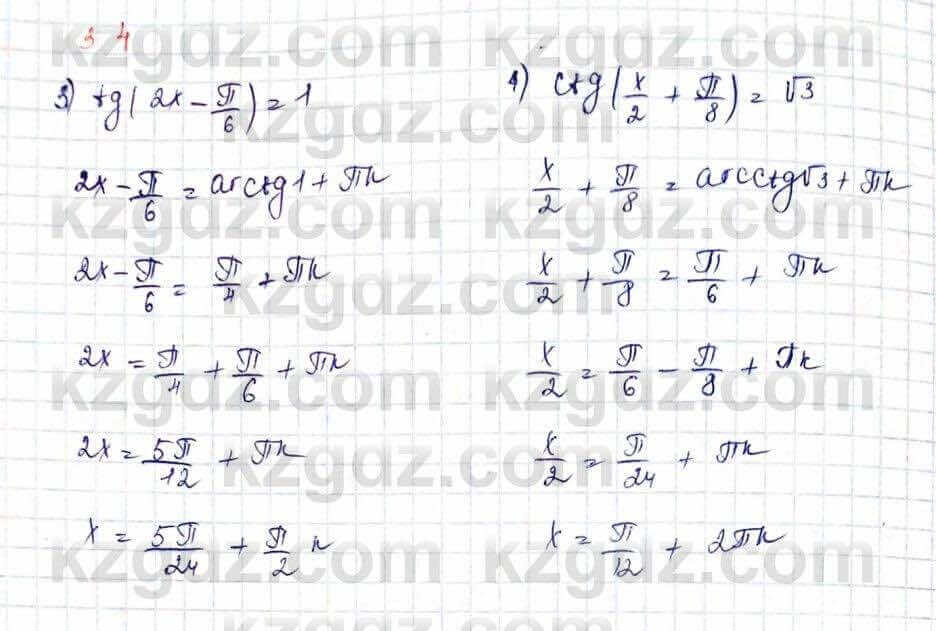 3 4
3) tg(2x - π/6) = 1
2x - π/6 = arctg1 + πk
2x - π/6 = π/4 + πk
2x = π/4 + π/6 + πk
2x = 5π/12 + πk
x = 5π/24 + π/2 k
4) ctg(x/2 + π/8) = √3
x/2 + π/8 = arcctg√3 + πk
x/2 + π/8 = π/6 + πk
x/2 = π/6 - π/8 + πk
x/2 = π/24 + πk
x = π/12 + 2πk
kzgdz.com kzgdz.com
kzgdz.com kzgdz.com
kzgdz.com kzgdz.com
kzgdz.com kzgdz.com
kzgdz.com kzgdz.com
kzgdz.com kzgdz.com
kzgdz.com kzgdz.com